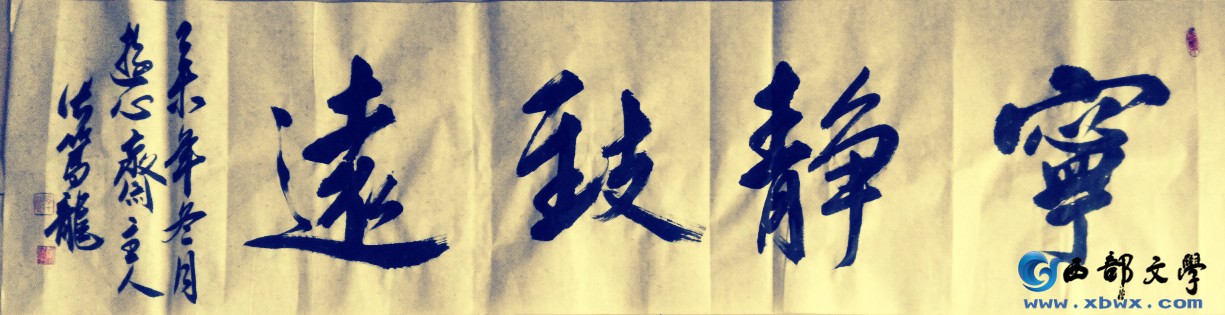 寧静致遠
未年冬月
遊心齋主人
篤龍
西部文學
www.xbwx.com